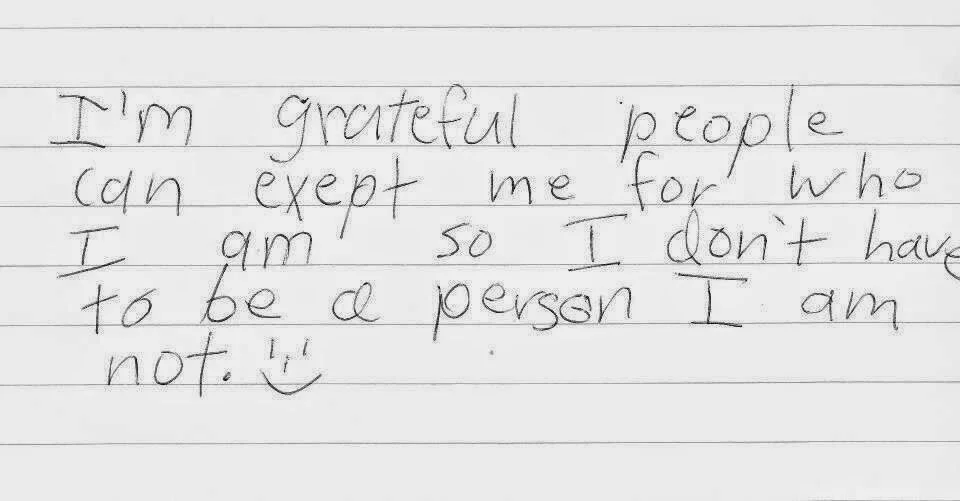 I'm grateful people
can exept me for who
I am so I don't have
to be a person I am
not.